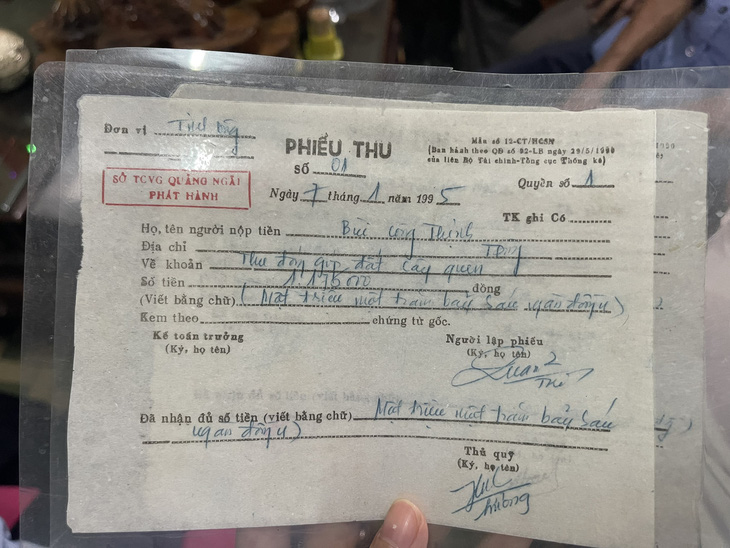 Đơn vị
PHIẾU THU
Mẫu số 12-CT/HCSN
(Ban hành theo QĐ số 92-LB ngày 29/5/1990
của liên Bộ Tài chính-Tổng cục Thống kê)
SỐ 01
Quyển số 1
SỞ TCVG QUẢNG NGÃI
PHÁT HÀNH
Ngày 7 tháng 1 năm 1995
TK ghi Có
Họ, tên người nộp tiền Bùi Công Thịnh
Địa chỉ
Về khoản Thu đóng góp đất cây quén
Số tiền 1176000 đồng
(Viết bằng chữ) (Một triệu một trăm bảy sáu ngàn đồng y)
Kèm theo chứng từ gốc.
Kế toán trưởng
(Ký, họ tên)
Người lập phiếu
(Ký, họ tên)
Đã nhận đủ số tiền (viết bằng chữ) Một triệu một trăm bảy sáu
ngàn đồng y)
Thủ quỹ
(Ký, họ tên)